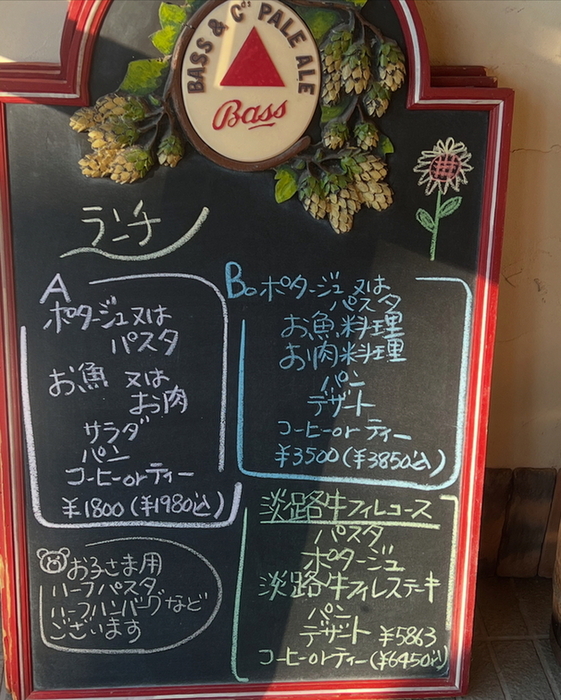 BASS & Co's PALE ALE
Bass
ランチ
A
ポタージュ又は
パスタ
お魚 又は
お肉
サラダ
パン
コーヒーorティー
¥1800(¥1980込)
B。ポタージュ又は
パスタ
お魚料理
お肉料理
パン
デザート
コーヒーorティー
¥3500(¥3850込)
お子さま用
ハーフパスタ
ハーフハンバーグなど
ございます
淡路牛フィレコース
パスタ
ポタージュ
淡路牛フィレステーキ
パン
デザート ¥5863
コーヒーorティー(¥6450込)